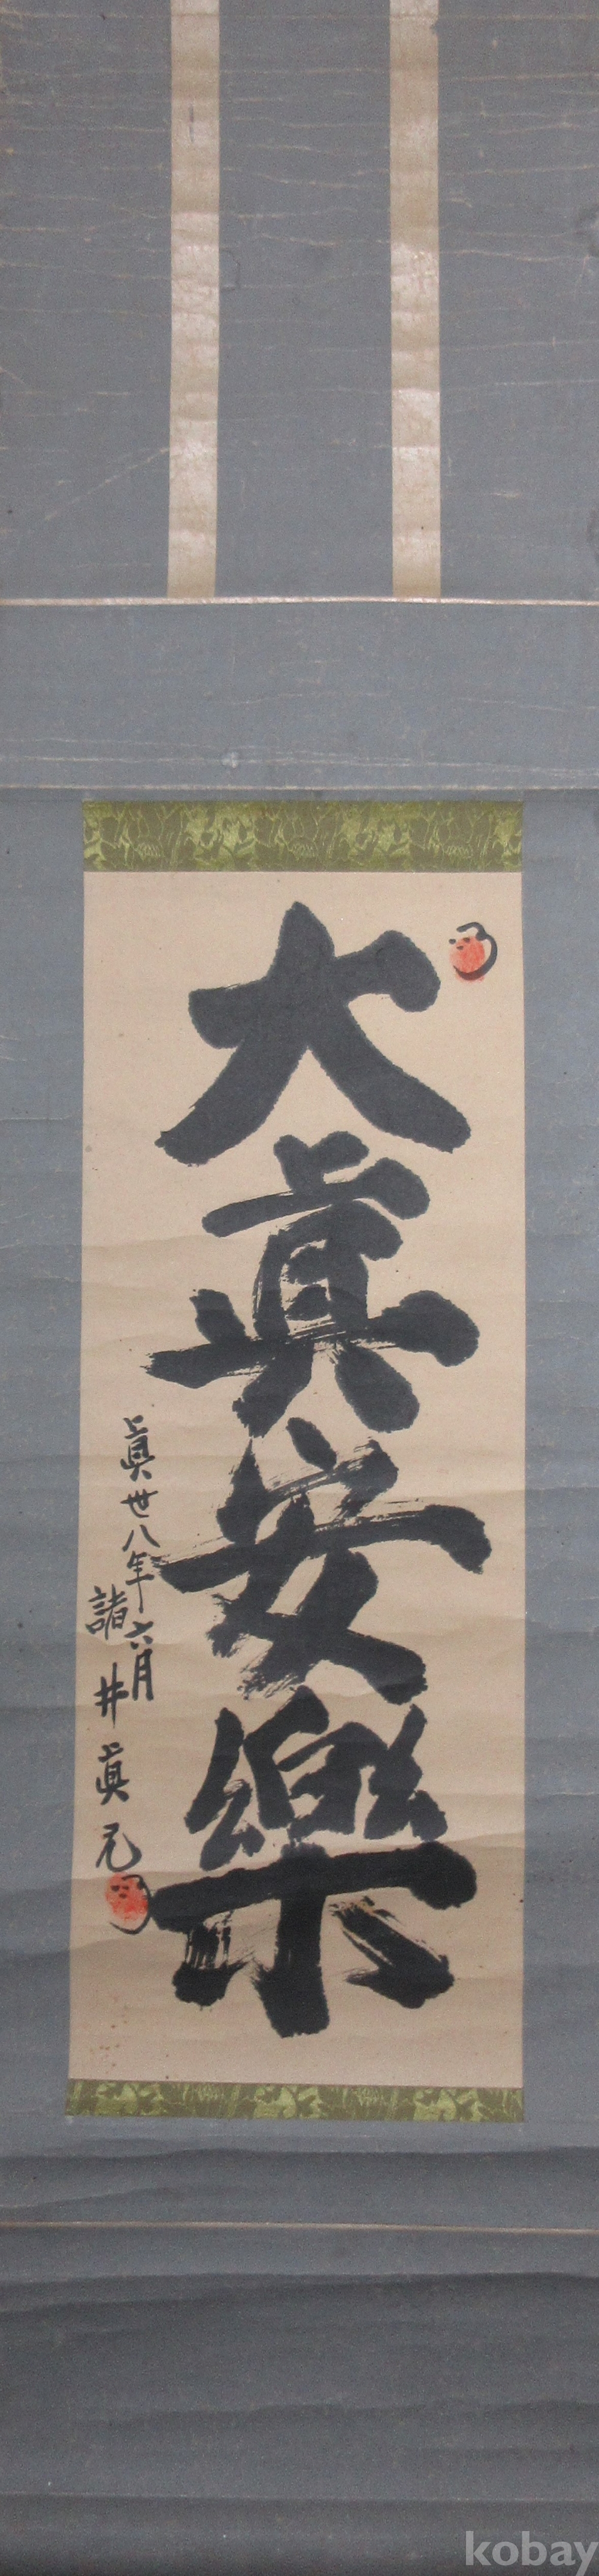 大眞安樂
眞世八年六月
諸井眞元
kobay